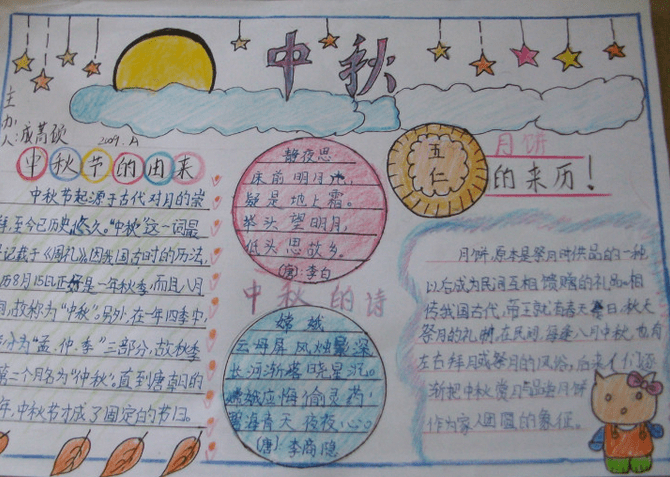 中秋
主办人:成
2009.
中秋节的由来
中秋节起源于古代对月的崇
拜,至今已历史悠久。“中秋”这一词最
记载于《周礼》,因我国古时的历法,
历8月15日正好是一年秋季,而且八月
间,故称为“中秋”。另外,在一年四季中,
分为“孟、仲、季”三部分,故秋季
第二个月名为“仲秋”,直到唐朝的
年,中秋节才成了固定的节日。
静夜思
床前明月光,
疑是地上霜。
举头望明月,
低头思故乡。
(唐):李白
中秋的诗
嫦娥
云母屏风烛影深,
长河渐落晓星沉。
嫦娥应悔偷灵药,
碧海青天夜夜心。
(唐):李商隐
五仁
月饼
的来历!
月饼,原本是祭月时供品的一种
以后成为民间互相馈赠的礼品。相
传我国古代,帝王就有春天祭日,秋天
祭月的礼制,在民间,每逢八月中秋,也有
左右拜月或祭月的风俗,后来人们逐
渐把中秋赏月与品尝月饼
作为家人团圆的象征。